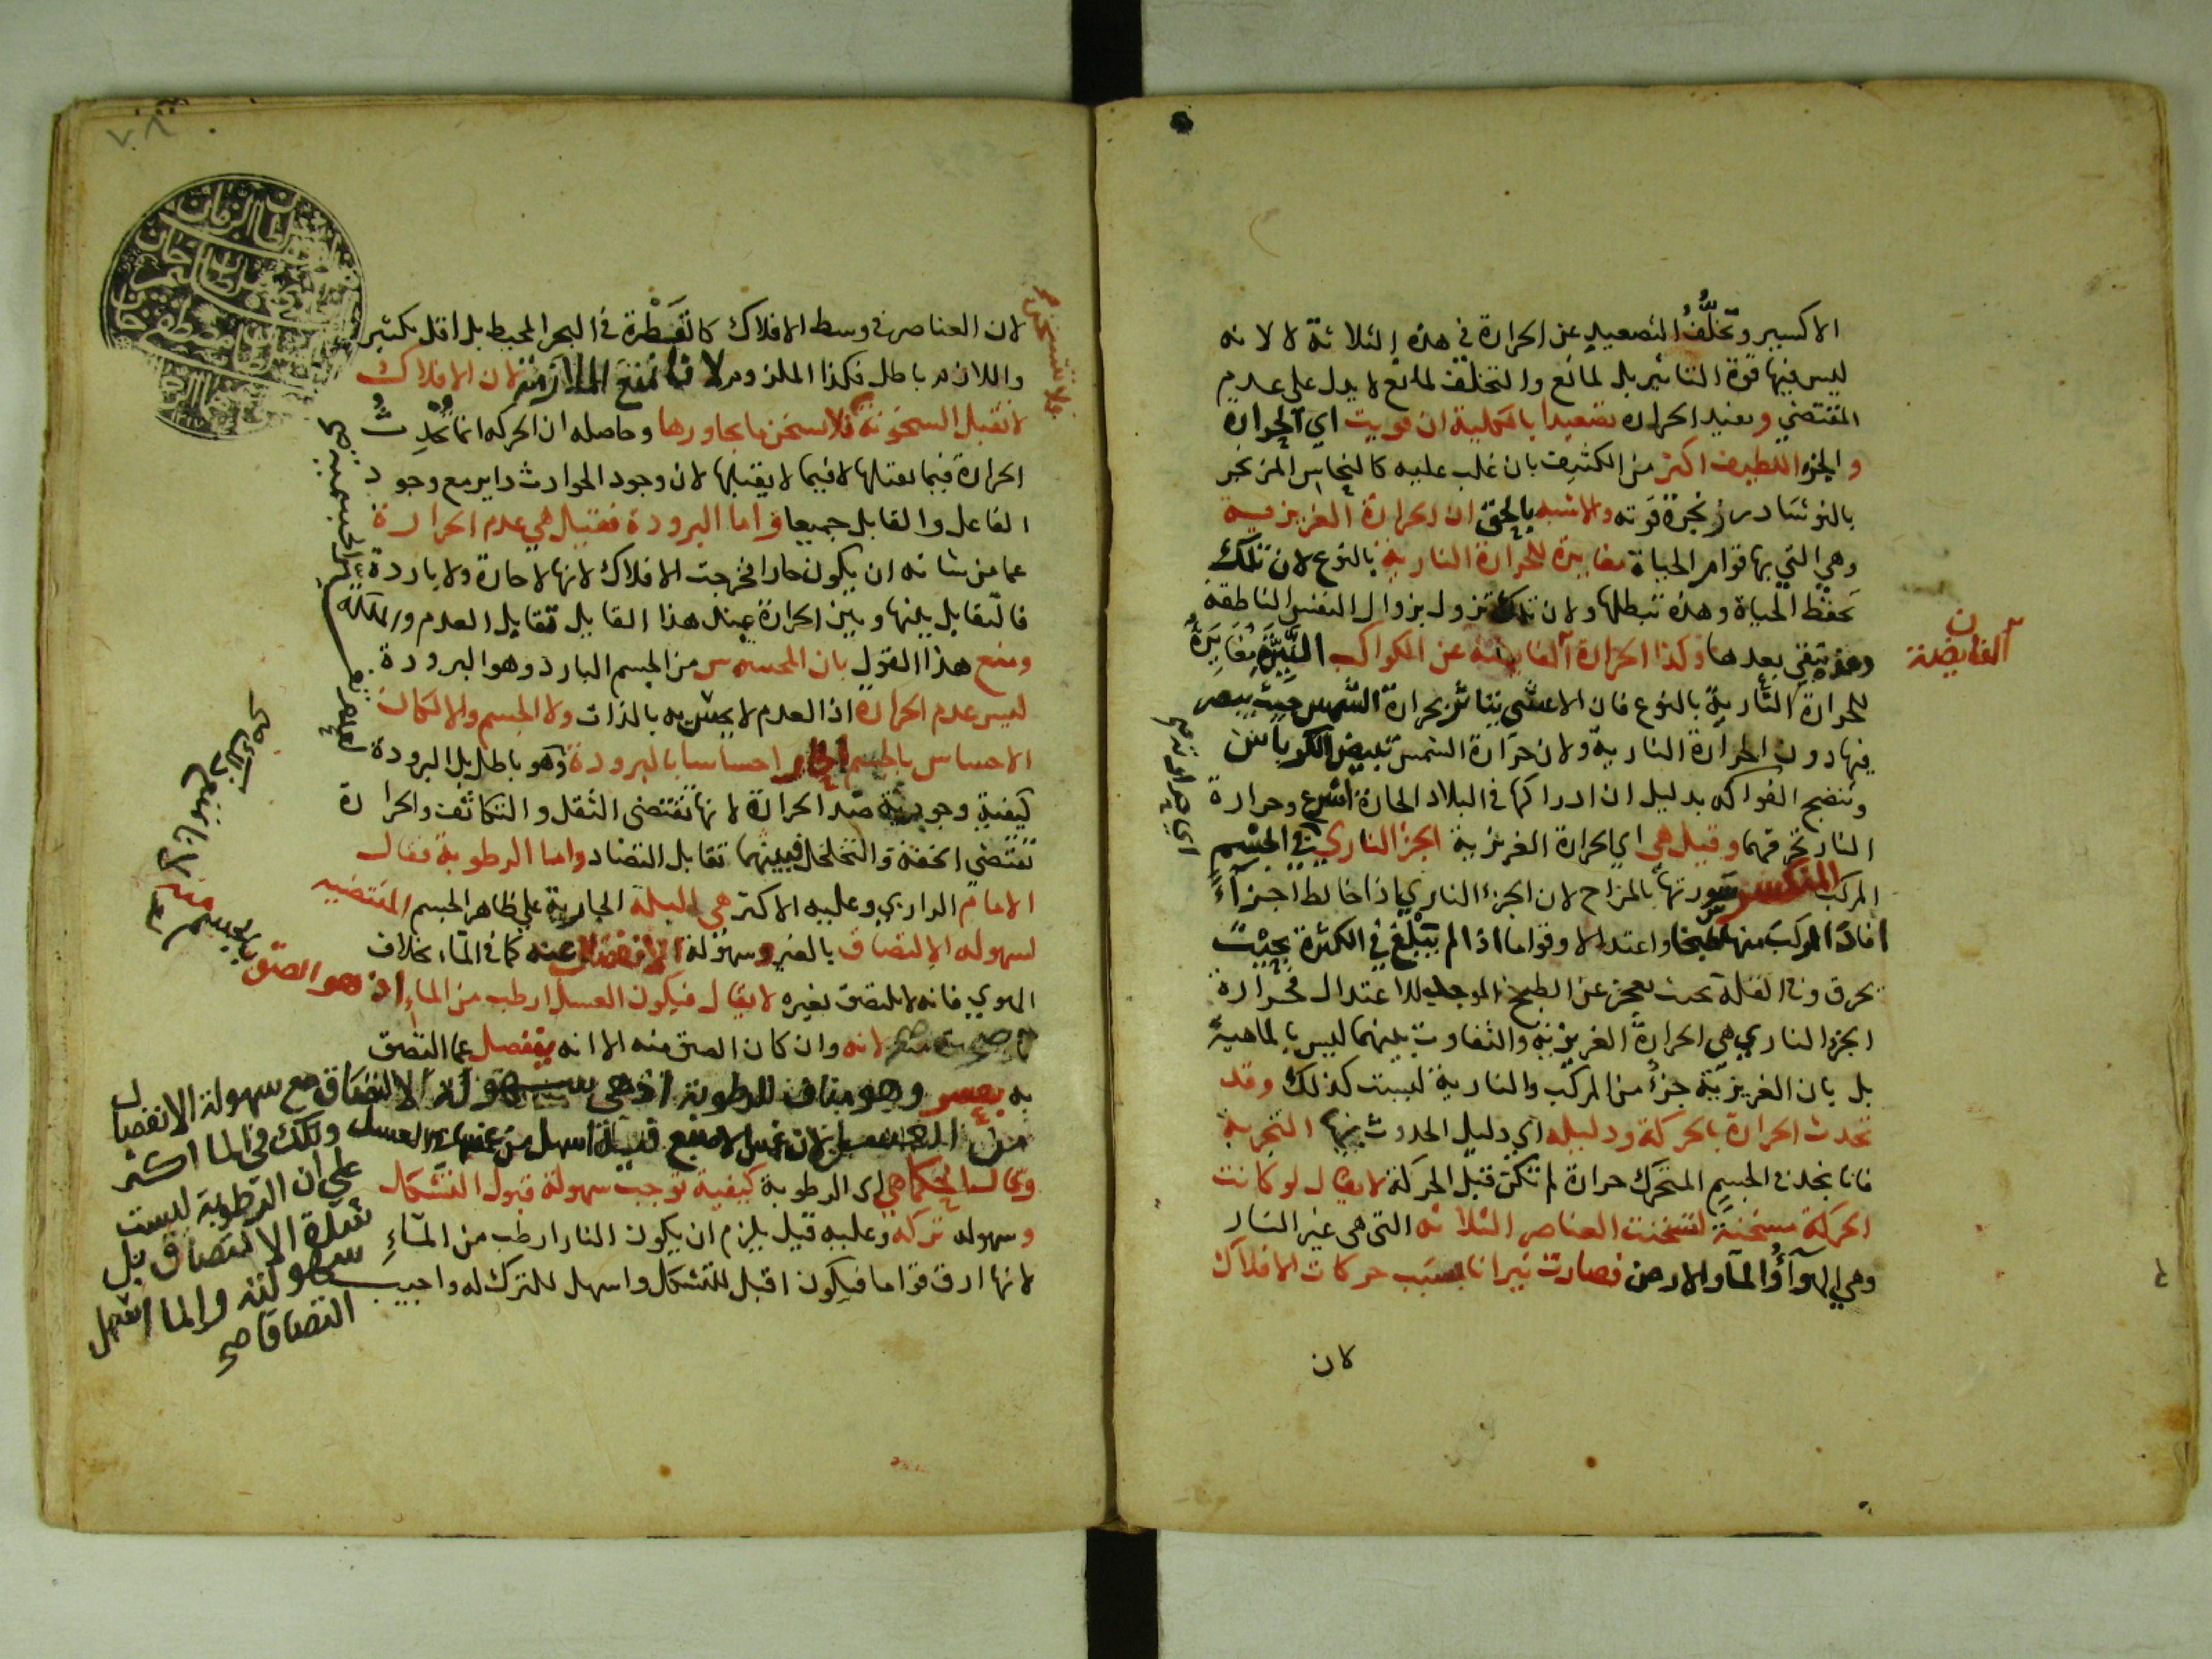 الاكسير وتخلّف التصعيد عن الحرارة في هذه الثلاثة لا لانه
ليس فيها قوة التأثير بل لمانع والتخلف لمانع لا يدل على عدم
المقتضي وتفيد الحرارة تصعيدا بالكلية ان قويت اي الحرارة
والجزء اللطيف اكثر من الكثيف بان غلب عليه كالنحاس المزنجر
بالنوشادر زنجرة قوته والاشبه بالحق ان الحرارة الغريزية
وهي التي بها قوام الحياة مغايرة للحرارة النارية بالنوع لان تلك
تحفظ الحياة وهذه تبطلها ولان تلك تزول بزوال النفس الناطقة
وهذه تبقى بعدها وكذا الحرارة الفايضة عن الكواكب النيّرة مغايرة
للحرارة النارية بالنوع فان الاعشى يتأثر بحرارة الشمس حيث يبصر
فيها دون الحرارة النارية ولان حرارة الشمس تبيض الكرباس
وتنضج الفواكه بدليل ان ادراكها في البلاد الحارة اسرع وحرارة
النار تحرقهما وقيل هي اي الحرارة الغريزية الجزء الناري في الجسم
المركب المنكسر سورتها بالمزاج لان الجزء الناري اذا خالط اجزآءً
افاد المركب منها طبخا واعتدالا وقواما اذا لم يبلغ في الكثرة بحيث
يحرق وفي القلة بحيث يعجز عن الطبخ الموجب للاعتدال فحرارة
الجزء الناري هي الحرارة الغريزية والتفاوت بينهما ليس بالماهية
بل بان الغريزية جزء من المركب والنارية ليست كذلك وقد
تحدث الحرارة بالحركة ودليله اي دليل الحدوث بها التجربة
فانا نجد في الجسم المتحرك حرارة لم تكن قبل الحركة لا يقال لو كانت
الحركة مسخنة لتسخنت العناصر الثلاثة التي هي غير النار
وهي الهوآء والمآء والارض فصارت نيرانا بسبب حركات الافلاك
لان
ن
الفايضة
لان العناصر في وسط الافلاك كالقطرة في البحر المحيط بل اقل بكثير
واللازم باطل فكذا الملزوم لانا نمنع الملازمة لان الافلاك
لا تقبل السخونة فلا تسخن ما يجاورها وحاصله ان الحركة انما تحدث
الحرارة فيما يقبلها لا فيما لا يقبلها لان وجود الحوادث داير مع وجود
الفاعل والقابل جميعا واما البرودة فقيل هي عدم الحرارة
عما من شانه ان يكون حارا فخرجت الافلاك لانها لا حارة ولا باردة
فالتقابل بينها وبين الحرارة عند هذا القايل تقابل العدم والملكة
ومنع هذا القول بان المحسوس من الجسم البارد وهو البرودة
ليس عدم الحرارة اذ العدم لا يحسّ به بالذات ولا الجسم والا لكان
الاحساس بالجسم الحار احساسا بالبرودة وهو باطل بل البرودة
كيفية وجودية ضد الحرارة لانها تقتضي الثقل والتكاثف والحرارة
تقتضي الخفة والتخلخل فبينهما تقابل التضاد واما الرطوبة فقال
الامام الرازي وعليه الاكثر هي البلة الجارية على ظاهر الجسم المقتضيه
لسهولة الالتصاق بالغير وسهولة الانفصال عنه كما في المآء بخلاف
الهوي فانه لا يلتصق بغيره لا يقال فيكون العسل ارطب من الماء اذ هو الصق بالجسم منه
لانه وان كان الصق منه الا انه ينفصل عما التصق
به بعسر وهو مناف للرطوبة اذ هي سهولة الالتصاق مع سهولة الانفصال
وذلك في الما اكثر
على ان الرطوبة ليست
شدة الالتصاق بل
سهولته والما اسهل
التصاقا صح
وقال الحكما هي اي الرطوبة كيفية توجب سهولة قبول التشكل
وسهولة تركه وعليه قيل يلزم ان يكون النار ارطب من المآء
لانها ارق قواما فيكون اقبل للتشكل واسهل للترك له واجيب